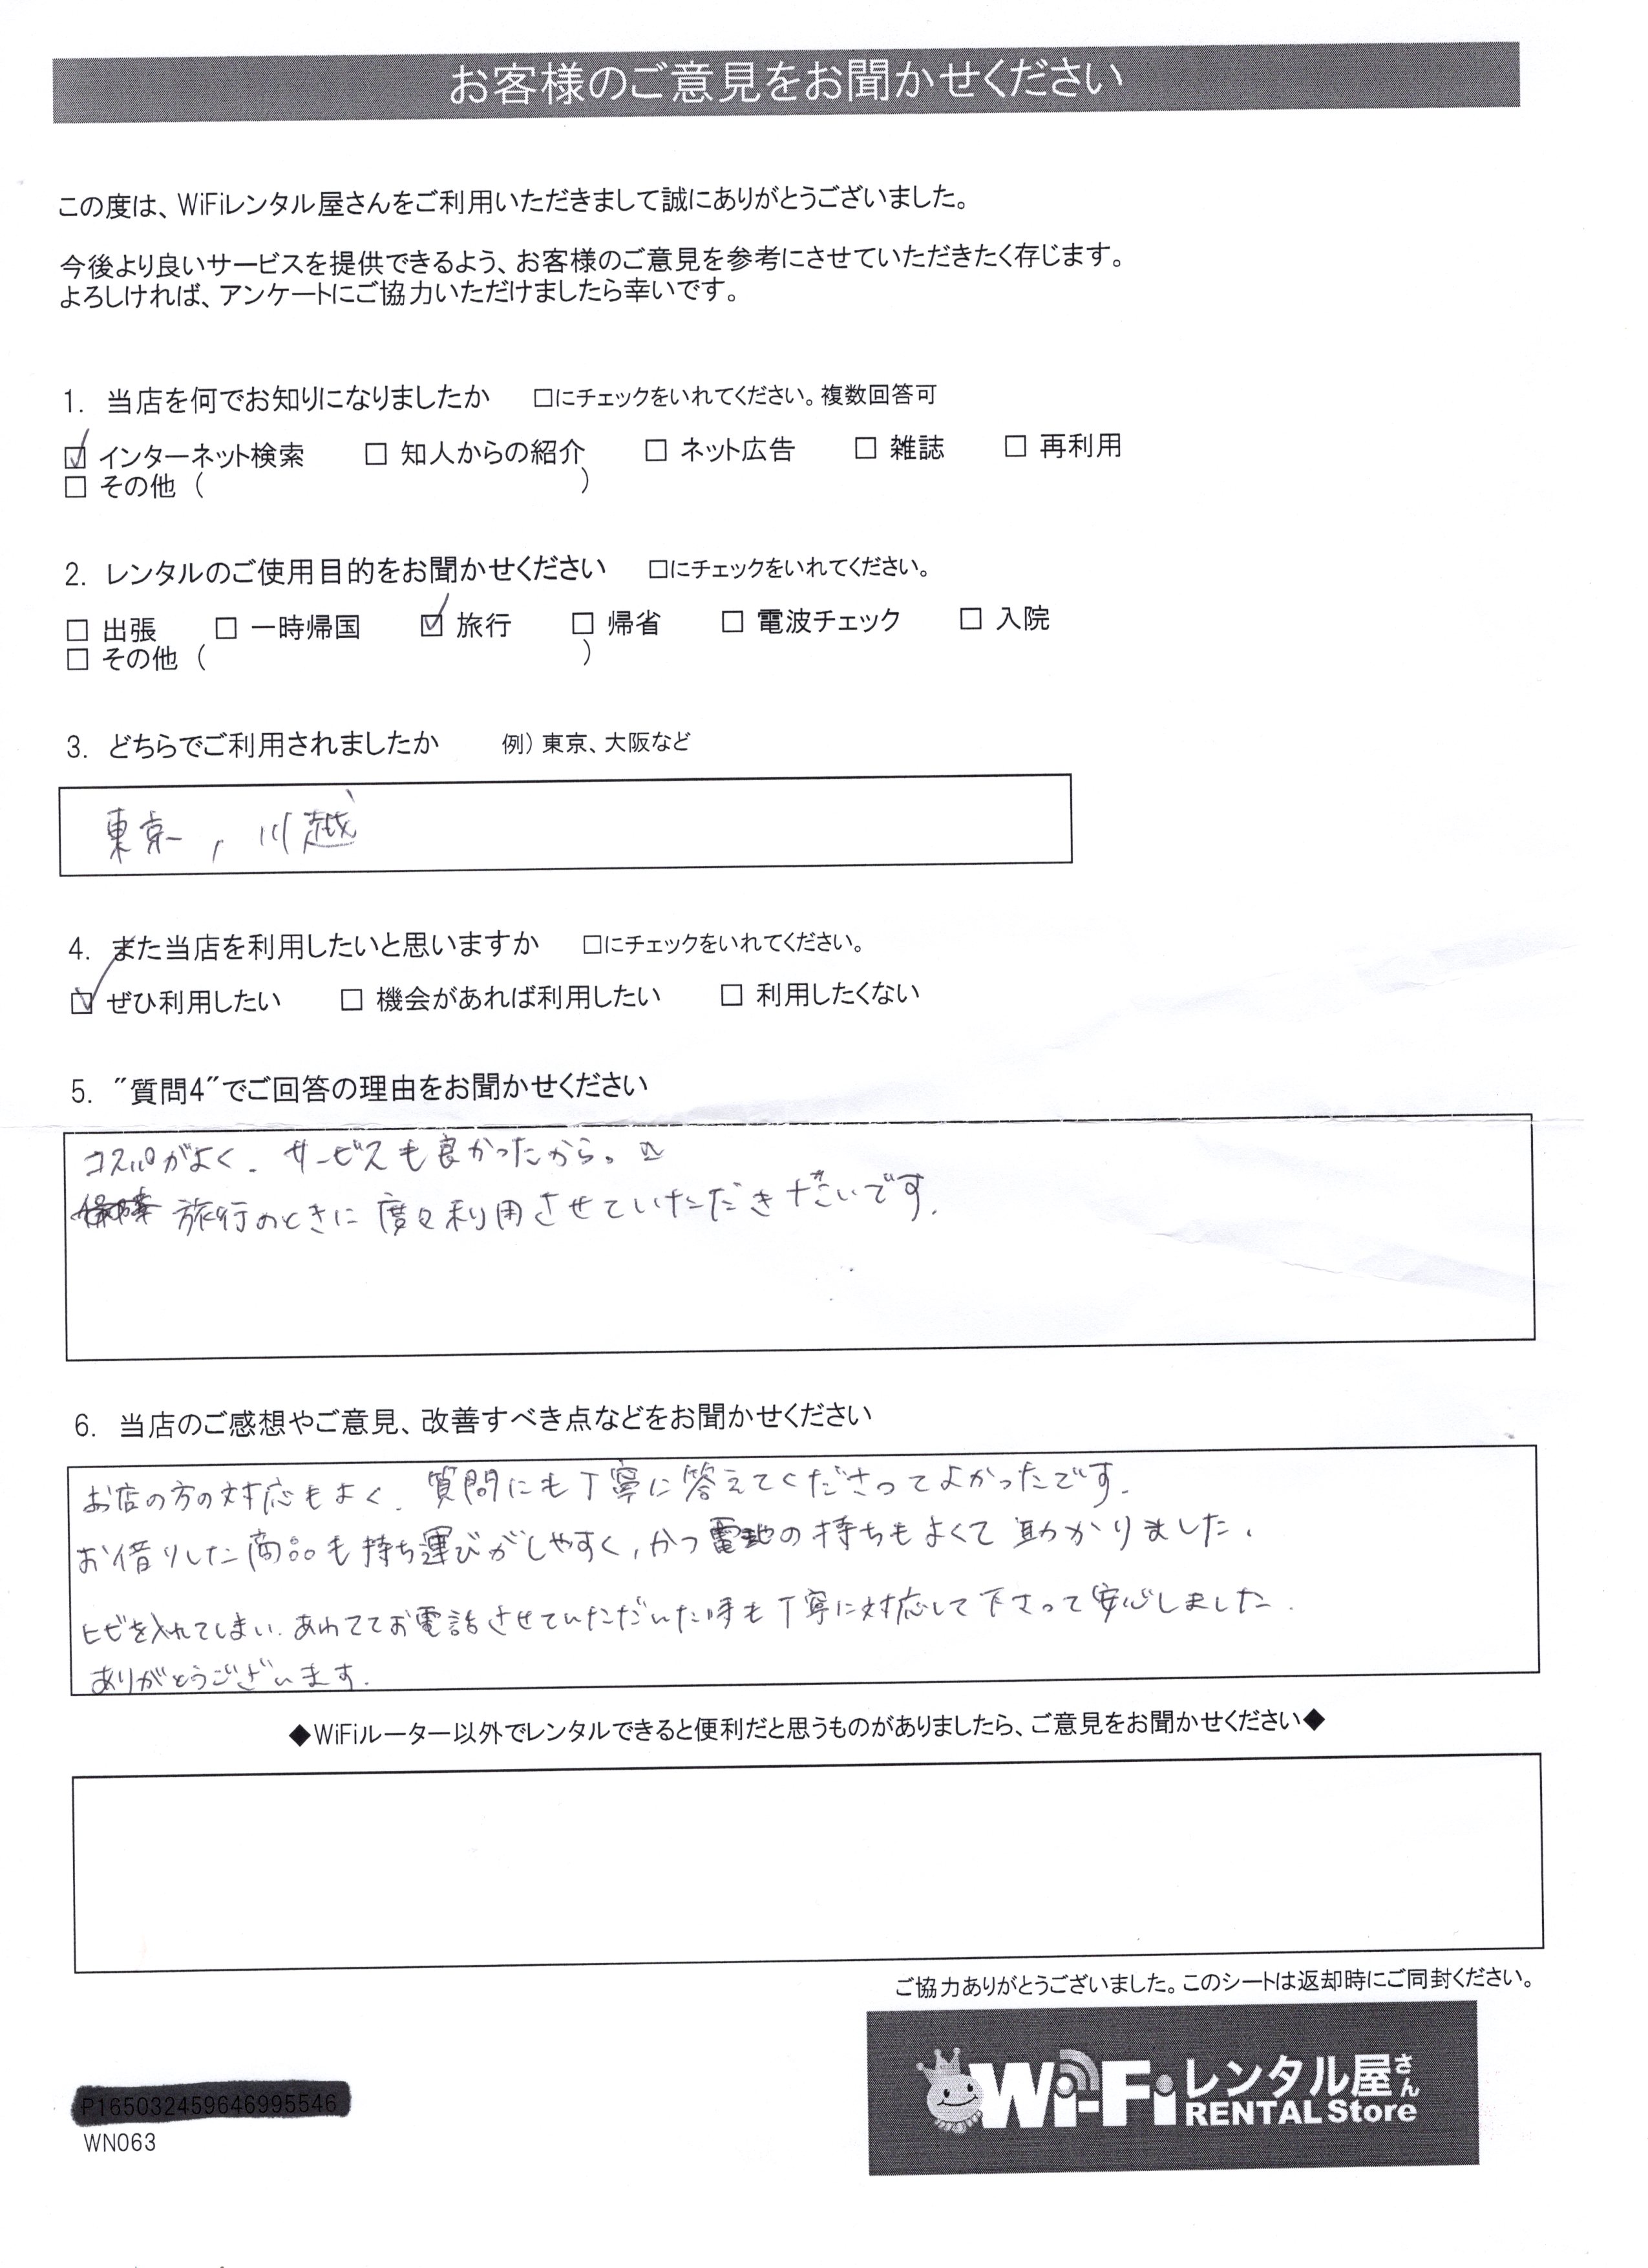 お客様のご意見をお聞かせください
この度は、WiFiレンタル屋さんをご利用いただきまして誠にありがとうございました。
今後より良いサービスを提供できるよう、お客様のご意見を参考にさせていただきたく存じます。
よろしければ、アンケートにご協力いただけましたら幸いです。
1. 当店を何でお知りになりましたか □にチェックをいれてください。複数回答可
☑ インターネット検索 □ 知人からの紹介 □ ネット広告 □ 雑誌 □ 再利用
□ その他 ( )
2. レンタルのご使用目的をお聞かせください □にチェックをいれてください。
□ 出張 □ 一時帰国 ☑ 旅行 □ 帰省 □ 電波チェック □ 入院
□ その他 ( )
3. どちらでご利用されましたか 例) 東京、大阪など
東京, 川越
4. また当店を利用したいと思いますか □にチェックをいれてください。
☑ ぜひ利用したい □ 機会があれば利用したい □ 利用したくない
5. "質問4"でご回答の理由をお聞かせください
コスパがよく、サービスも良かったから。
旅行のときに度々利用させていただきたいです。
6. 当店のご感想やご意見、改善すべき点などをお聞かせください
お店の方の対応もよく、質問にも丁寧に答えてくださってよかったです。
お借りした商品も持ち運びがしやすく、かつ電池の持ちもよくて助かりました。
ヒビを入れてしまい、あわててお電話させていただいた時も丁寧に対応して下さって安心しました。
ありがとうございます。
◆WiFiルーター以外でレンタルできると便利だと思うものがありましたら、ご意見をお聞かせください◆
ご協力ありがとうございました。このシートは返却時にご同封ください。
Wi-Fiレンタル屋さん
RENTAL Store
P165032459646995546
WN063